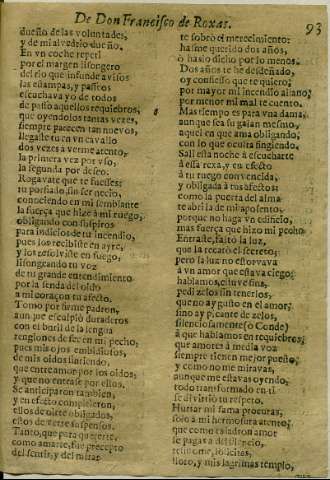 De Don Francisco de Roxas.
93
dueño de las voluntades,
y de mi alvedrio dueño.
En vn coche repetì
por el margen lisongero
del rio que infunde avisos
las estampas, y passeos
escuchava yo de todos
de passo aquellos requiebros,
que oyendolos tantas vezes,
siempre parecen tan nuevos,
llegaste tu en vn cavallo
dos vezes à verme atento,
la primera vez por vso,
la segunda por deseo.
Rogavate que te fuesses;
tu porfiaste sin ser necio,
conociendo en mi semblante
la fuerça que hize à mi ruego,
obligando con suspiros
para indicios de tu incendio,
pues los recibiste en ayre,
y los resolviste en fuego,
lisongeando tu voz
de tu grande entendimiento
por la senda del oido
à mi coraçon tu afecto.
Tomò por firme padron,
aun que esculpiò duraderos
con el buril de la lengua
renglones de fee en mi pecho,
pues mis ojos embidiosos,
de mis oidos sintiendo,
que entre amor por los oidos,
y que no entrasse por ellos.
Se anticiparon tambien,
y en efecto compitieron,
ellos de oirte obligados,
estos de verte suspensos.
Tanto, que para quererte,
como amarte, fue precepto
del sentir, y del mirar
te sobrò el merecimiento:
hasme querido dos años,
ò haslo dicho por lo menos.
Dos años te he desdeñado,
oy confiesso que te quiero;
por mayor mi incendio aliano,
por menor mi mal te cuento.
Mas tiempo es para vna dama,
aunque sea su galan mesmo,
aquel en que ama obligando,
con lo que oculta fingiendo.
Salì esta noche à escucharte
à essa rexa, y en efecto
à tu ruego convencida,
y obligada à tus afectos:
como la puerta del alma
te abrì la de mi aposento,
porque no haga vn edificio,
mas fuerça que hizo mi pecho
Entraste, faltò la luz,
que la recatò el secreto;
pero la luz no estorvava
à vn amor que estava ciego;
hablamos, estuve fina,
pedì zelos sin tenerlos,
que no ay gusto en el amor,
sino ay picante de zelos,
silenciosamente (ò Conde)
à que hablamos en requiebros,
que amores à media voz
siempre tienen mejor puesto,
y como no me miravas,
aunque me estavas oyendo,
todo transformado en tì
se divirtiò tu respeto.
Hurtar mi fama procuras,
solo à mi hermosura atento,
que como es ladron amor
se pagava del silencio,
reñime, solicitas,
lloro, y mis lagrimas templo,